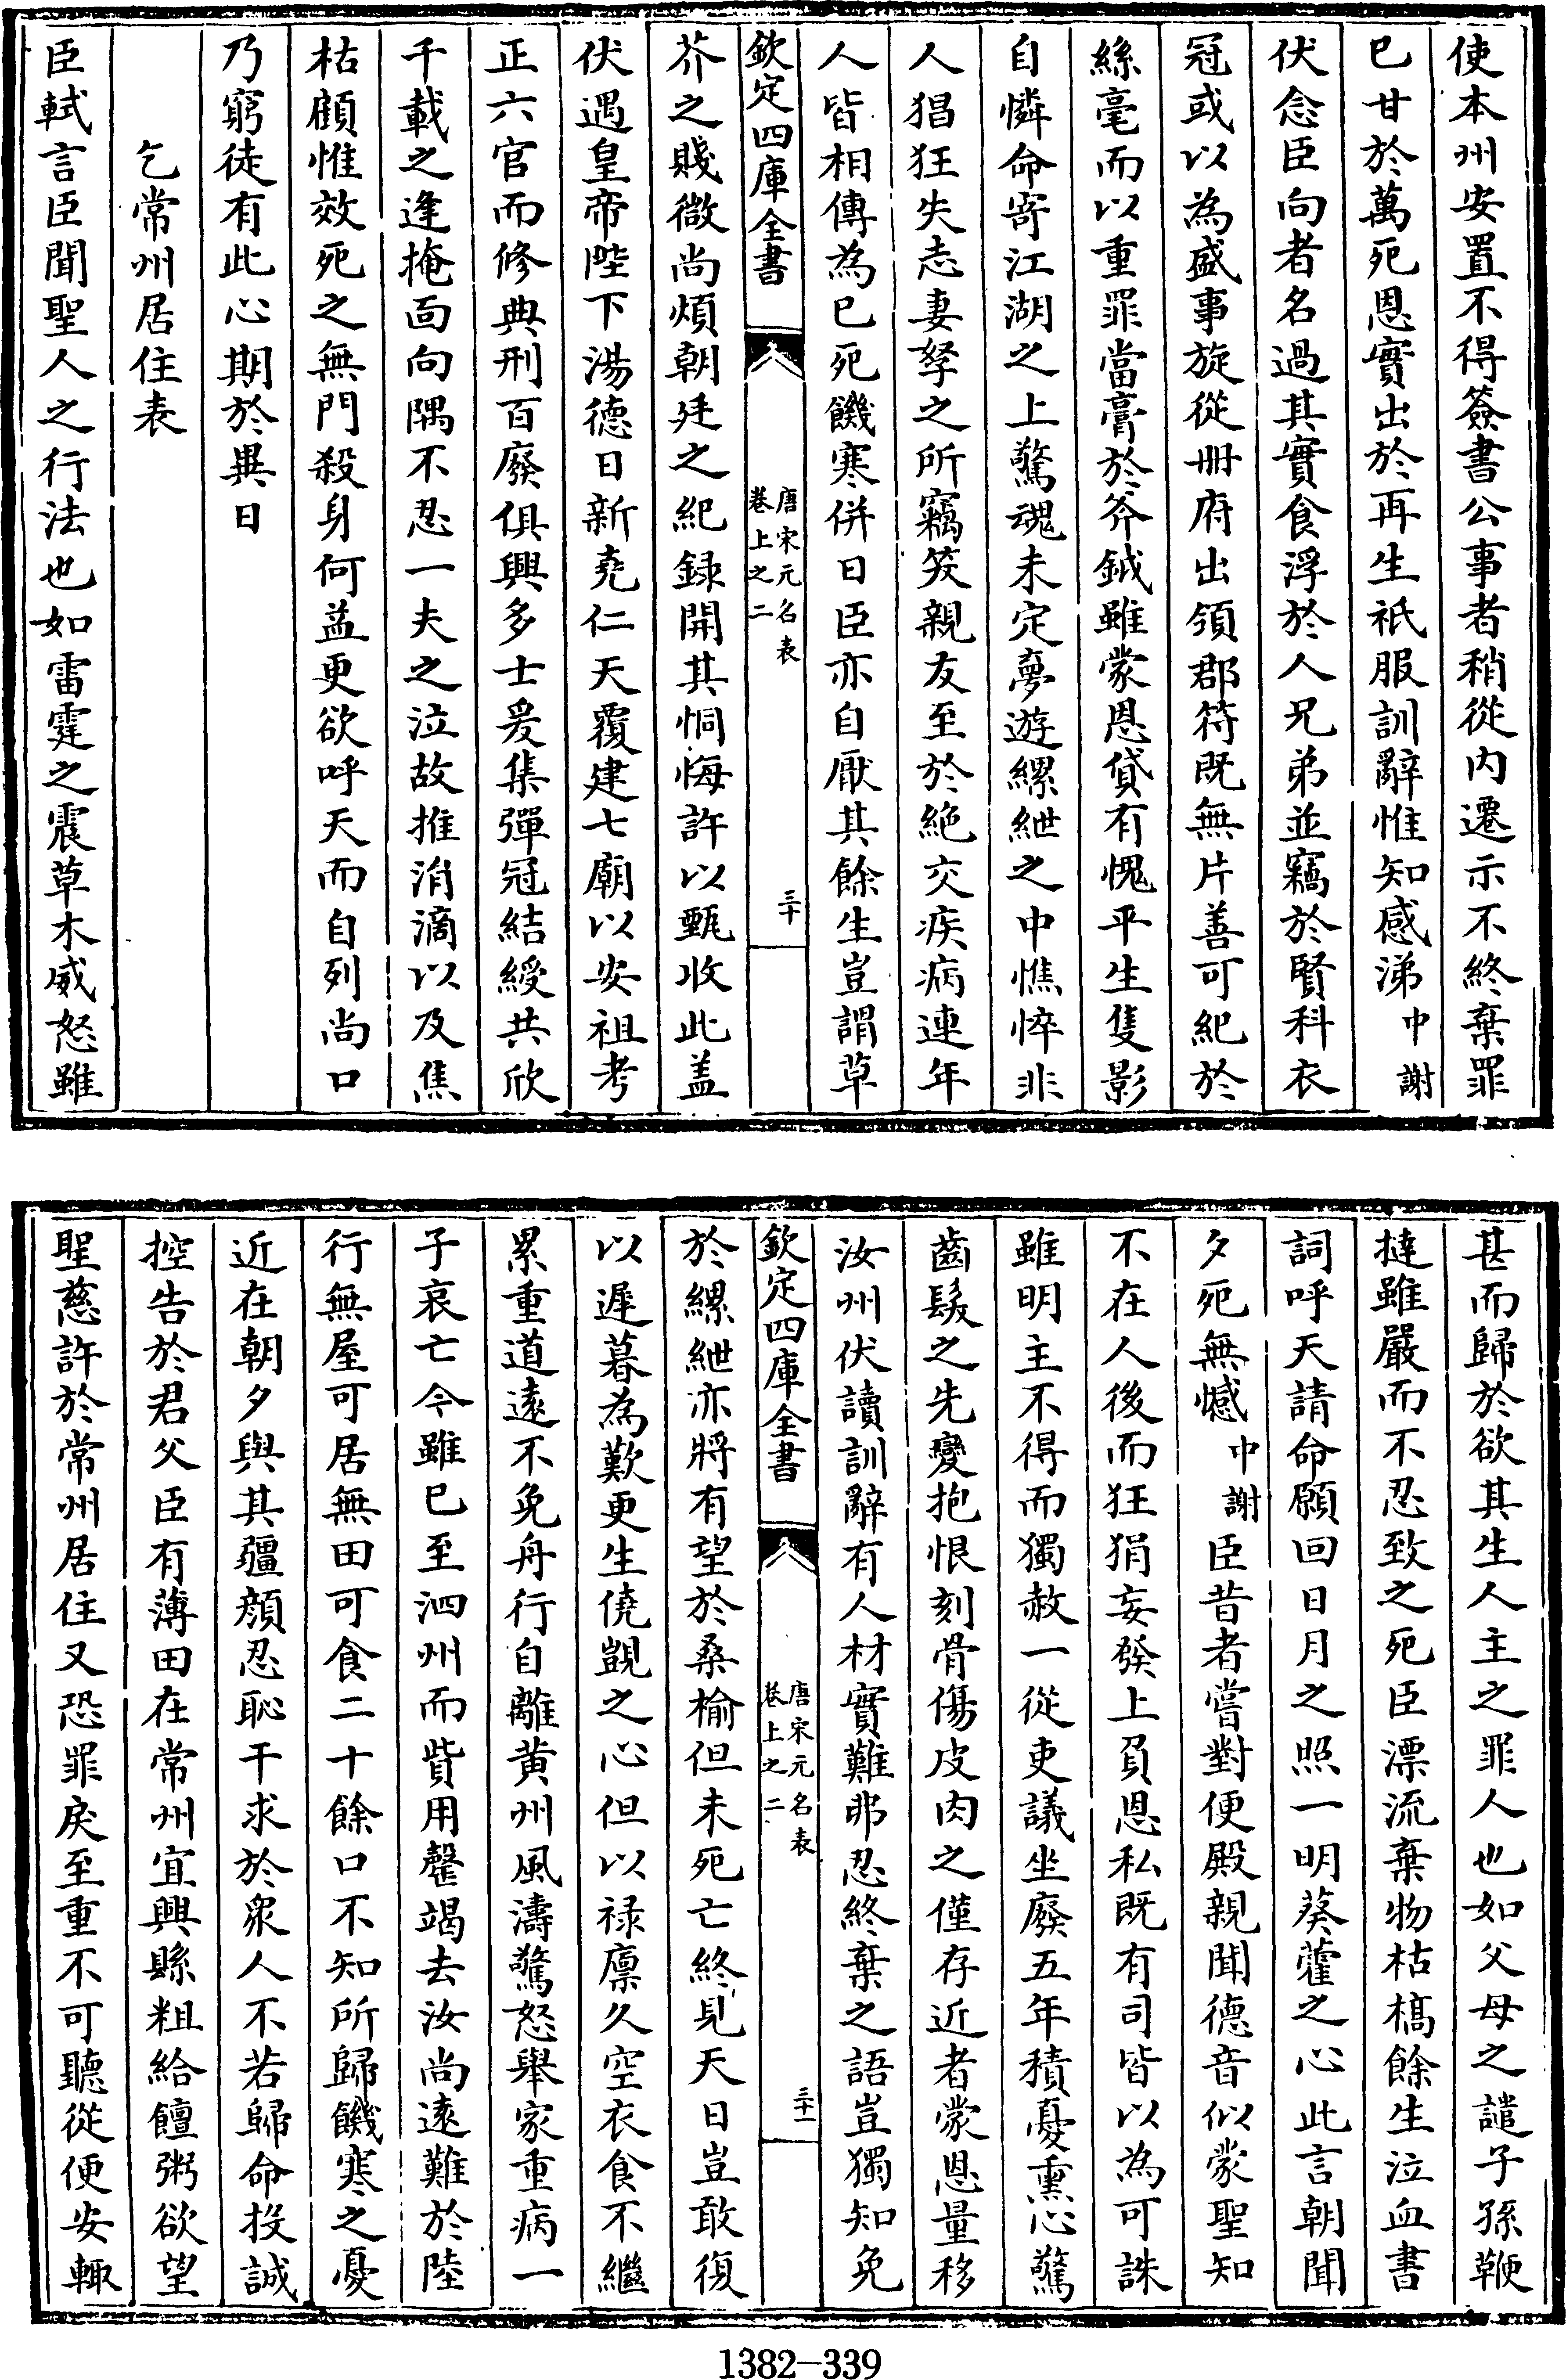 使本州安置不得簽書公事者稍從内遷示不終棄罪
已甘於萬死恩實出於再生祇服訓辭惟知感涕中謝
伏念臣向者名過其實食浮於人兄弟並竊於賢科衣
冠或以為盛事旋從冊府出領郡符既無片善可紀於
絲毫而以重罪當膏於斧鉞雖蒙恩貸有愧平生隻影
自憐命寄江湖之上驚魂未定夢遊縲紲之中憔悴非
人猖狂失志妻孥之所竊笑親友至於絶交疾病連年
人皆相傳為已死饑寒併日臣亦自厭其餘生豈謂草
欽定四庫全書
唐宋元名表
卷上之二
三十
芥之賤微尚煩朝廷之紀録開其恫悔許以甄收此盖
伏遇皇帝陛下湯德日新堯仁天覆建七廟以安祖考
正六官而修典刑百廢俱興多士爰集彈冠結綬共欣
千載之逢掩面向隅不忍一夫之泣故推涓滴以及焦
枯顧惟效死之無門殺身何益更欲呼天而自列尚口
乃窮徒有此心期於異日
乞常州居住表
臣軾言臣聞聖人之行法也如雷霆之震草木威怒雖
甚而歸於欲其生人主之罪人也如父母之譴子孫鞭
撻雖嚴而不忍致之死臣漂流棄物枯槁餘生泣血書
詞呼天請命願回日月之照一明葵藿之心此言朝聞
夕死無憾中謝臣昔者嘗對便殿親聞德音似蒙聖知
不在人後而狂狷妄發上負恩私既有司皆以為可誅
雖明主不得而獨赦一從吏議坐廢五年積憂熏心驚
齒髮之先變抱恨刻骨傷皮肉之僅存近者蒙恩量移
汝州伏讀訓辭有人材實難弗忍終棄之語豈獨知免
欽定四庫全書
唐宋元名表
卷上之二
三十一
於縲紲亦將有望於桑榆但未死亡終見天日豈敢復
以遲暮為歎更生僥覬之心但以禄廪久空衣食不繼
累重道遠不免舟行自離黄州風濤驚怒舉家重病一
子哀亡今雖已至泗州而貲用罄竭去汝尚遠難於陸
行無屋可居無田可食二十餘口不知所歸饑寒之憂
近在朝夕與其彊顔忍恥干求於衆人不若歸命投誠
控告於君父臣有薄田在常州宜興縣粗給饘粥欲望
聖慈許於常州居住又恐罪戾至重不可聽從便安輙
1382—339